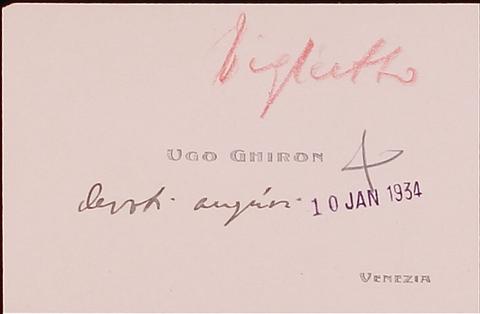 Biglietto
UGO GHIRON
devoti auguri 10 JAN 1934
VENEZIA